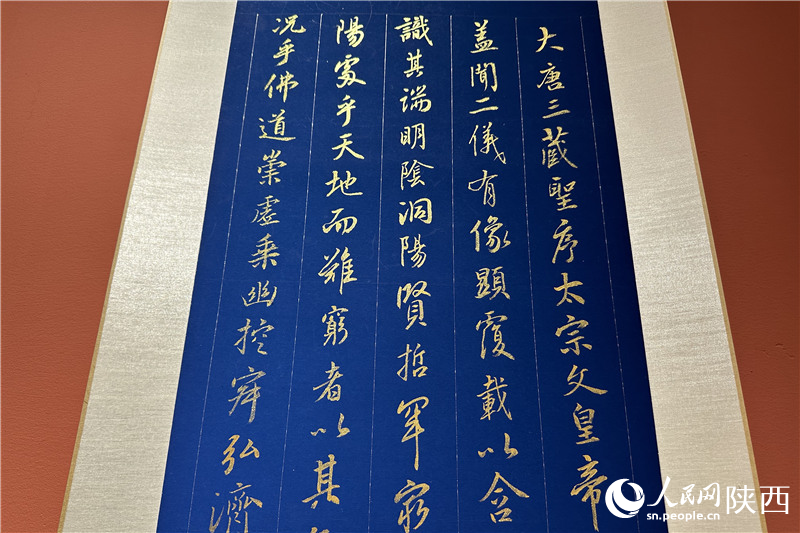 大唐三藏聖序太宗文皇帝
蓋聞二儀有像顯覆載以含
識其端明陰洞陽賢哲罕窮
陽處乎天地而難窮者以其
况乎佛道崇虛乘幽控寂弘濟
人民网 陕西
sn.people.cn